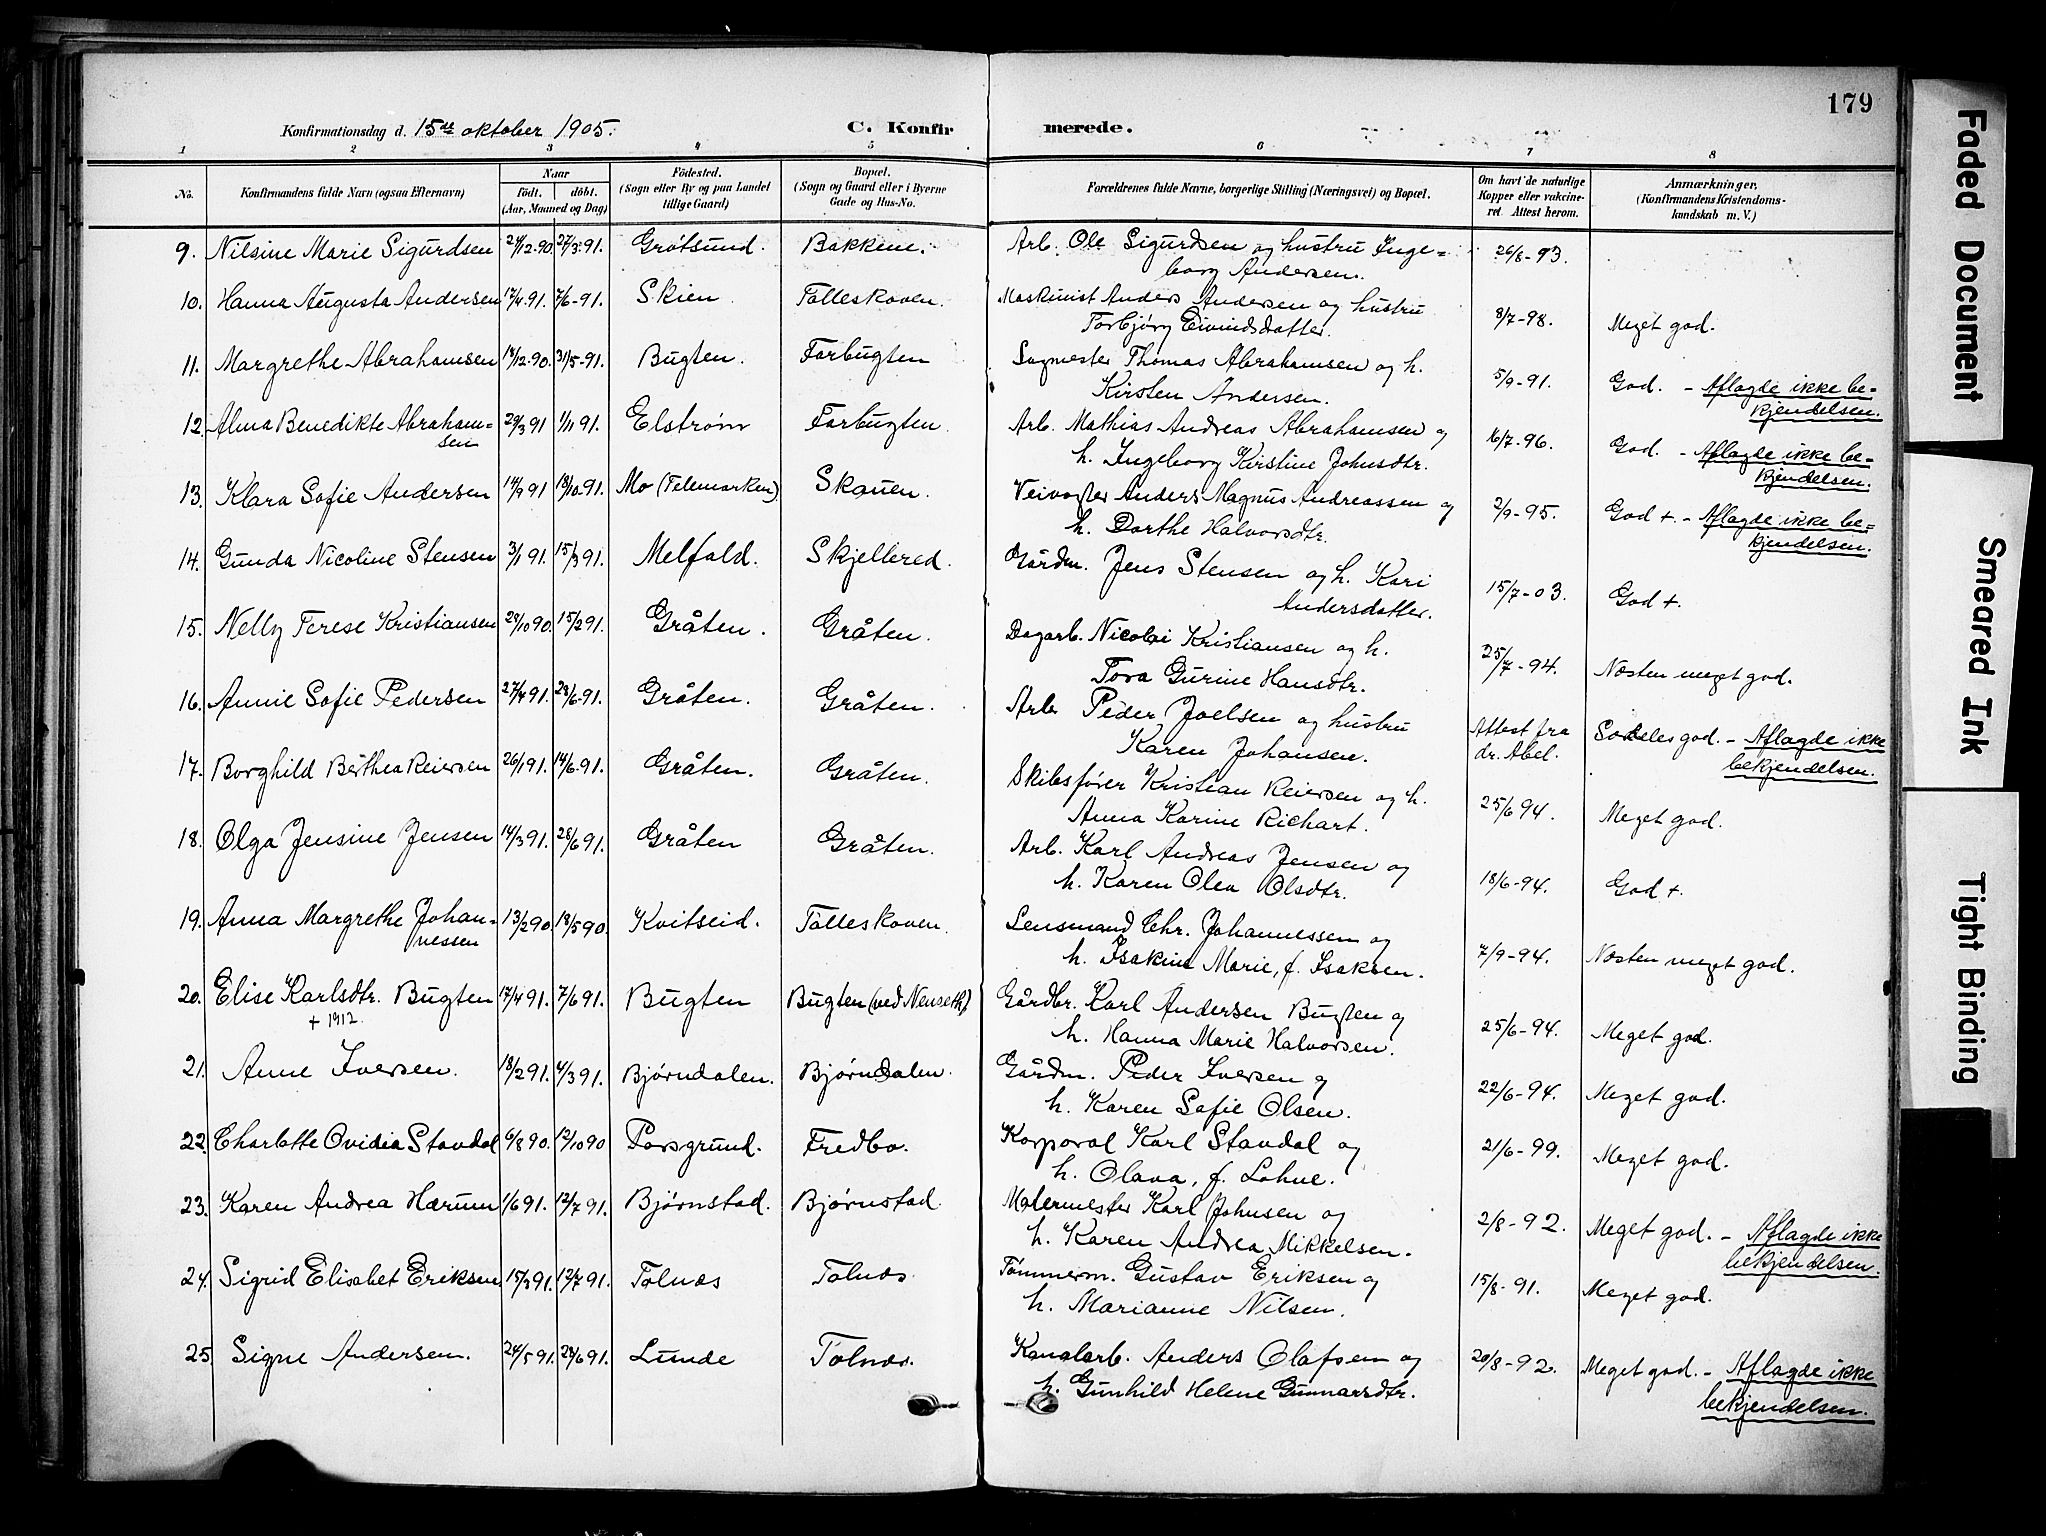 179
Konfirmationsdag d. 15de oktober 1905. C. Konfirmerede.
1 2 3 4 5 6 7 8
No. Konfirmandens fulde Navn (ogsaa Efternavn) Naar født. døbt. (Aar, Maaned og Dag) Fødested. (Sogn eller By og paa Landet tillige Gaard) Bopæl. (Sogn og Gaard eller i Byerne Gade og Hus-No. Forældrenes fulde Navne, borgerlige Stilling (Næringsvei) og Bopæl. Om havt de naturlige Kopper eller vakcineret. Attest herom. Anmærkninger, (Konfirmandens Kristendomskundskab m. V.)
9. Nilsine Marie Sigurdsen 27/12.90. 27/3.91. Grøtsund. Bakkene. Arb. Ole Sigurdsen og hustru Inge=
borg Andersen. 26/8-93.
10. Hanna Augusta Andersen 17/4.91. 7/6-91. Skien. Tolleskoven. Maskinist Anders Andersen og hustru
Torbjørg Eivindsdatter. 8/7-98. Meget god.
11. Margrethe Abrahamsen 14/12.90. 31/5-91. Bugten. Farbugten Sagmester Thomas Abrahamsen og h.
Kirsten Andersen. 5/9-91. God. - Aflagde ikke be=
kjendelsen.
12. Alma Benedikte Abraham=
sen 29/3 91 1/11 91. Elstrøm Farbugten. Arb. Mathias Andreas Abrahamsen og
h. Ingeborg Kirstine Johnsdtr. 16/7-96. God. - Aflagde ikke be=
kjendelsen.
13. Klara Sofie Andersen 14/9 91 18/10.91. Mo (Telemarken) Skauen. Veivogter Anders Magnus Andreassen og
h. Dorthe Halvorsdtr. 2/9-95. God +. - Aflagde ikke be=
kjendelsen.
14. Gunda Nicoline Stensen 3/1 91. 15/3 91. Melfald. Skjellered. Gårdm. Jens Stensen og h. Kari
Andersdatter. 15/7-03. God +.
15. Nelly Terese Kristiansen 29/10 90. 15/2 91. Gråten. Gråten. Dagarb. Nicolai Kristiansen og h.
Tora Gurine Hansdtr. 25/7-94. Næsten meget god.
16. Annie Sofie Pedersen 27/4 91. 28/6.91. Gråten. Gråten. Arb. Peder Joelsen og hustru
Karen Johansen. Attest fra
dr. Abel. Særdeles god. - Aflagde ikke
bekjendelsen.
17. Borghild Berthea Reiersen 26/1 91. 14/6.91. Gråten. Gråten. Skibsfører Kristian Reiersen og h.
Anna Karine Richart. 25/6 94. Meget god.
18. Olga Jensine Jensen 14/3 91. 28/6 91. Gråten Gråten. Arb. Karl Andreas Jensen og
h. Karen Olea Olsdtr. 18/6-94. God +.
19. Anna Margrethe Johan=
nessen 13/2 90. 18/5 90. Kvitseid. Tolleskoven. Lensmand Chr. Johannessen og
h. Isakine Marie, f. Isaksen. 7/9-94. Næsten meget god.
20. Elise Karlsdtr. Bugten 17/4 91. 7/6 91. Bugten Bugten (ved Nenseth) Gårdbr. Karl Andersen Bugten og
+ 1912.
h. Hanna Marie Halvorsen. 25/6-94. Meget god.
21. Anne Iversen. 18/2 91. 4/3 91. Bjørndalen. Bjørndalen. Gårdm. Peder Iversen og
h. Karen Sofie Olsen. 22/6-94. Meget god.
22. Charlotte Ovidia Stavdal 6/8 90. 12/10 90 Porsgrund. Fredbo. Korporal Karl Stavdal og
h. Olava, f. Lohne. 21/6-99. Meget god.
23. Karen Andrea Hærum 1/6 91. 12/7 91. Bjørnstad. Bjørnstad. Malermester Karl Johnsen og
h. Karen Andrea Mikkelsen. 2/8-92. Meget god. - Aflagde ikke
bekjendelsen.
24. Sigrid Elisabet Eriksen 15/3 91. 12/7 91. Tolnæs Tolnæs Tømmerm. Gustav Eriksen og
h. Marianne Nilsen. 15/8-91. Meget god.
25. Signe Andersen. 24/5 91. 29/6 91. Lunde Tolnæs. Kanalarb. Anders Olafsen og
h. Gunhild Helene Gunnarsdtr. 20/8-92. Meget god. - Aflagde ikke
bekjendelsen.
Faded Document
Smeared Ink
Tight Binding